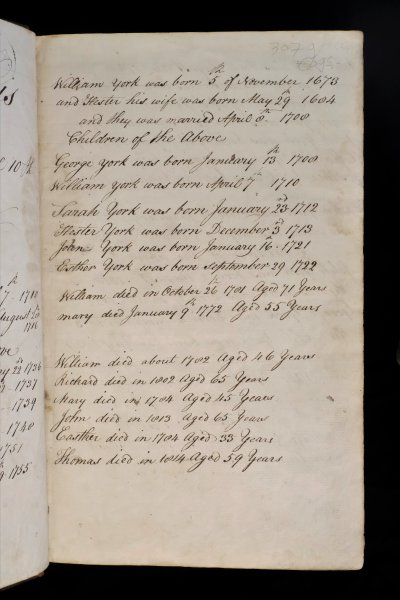 William York was born 5th of November 1673
and Hester his wife was born May 29th 1684
and they was married April 8th 1708
Children of the Above
George York was born January 13th 1708
William York was born April 7th 1710
Sarah York was born January 23d 1712
Hester York was born December 3d 1713
John York was born January 16th 1721
Esther York was born September 29 1722
William died in October 26th 1781 Aged 71 Years
mary died January 9th 1772 Aged 55 Years
William died about 1782 Aged 46 Years
Richard died in 1802 Aged 65 Years
Mary died in 1784 Aged 45 Years
John died in 1813 Aged 65 Years
Easther died in 1784 Aged 33 Years
Thomas died in 1814 Aged 59 Years
1710
August
1716
22 1736
1737
1739
1740
1751
1755